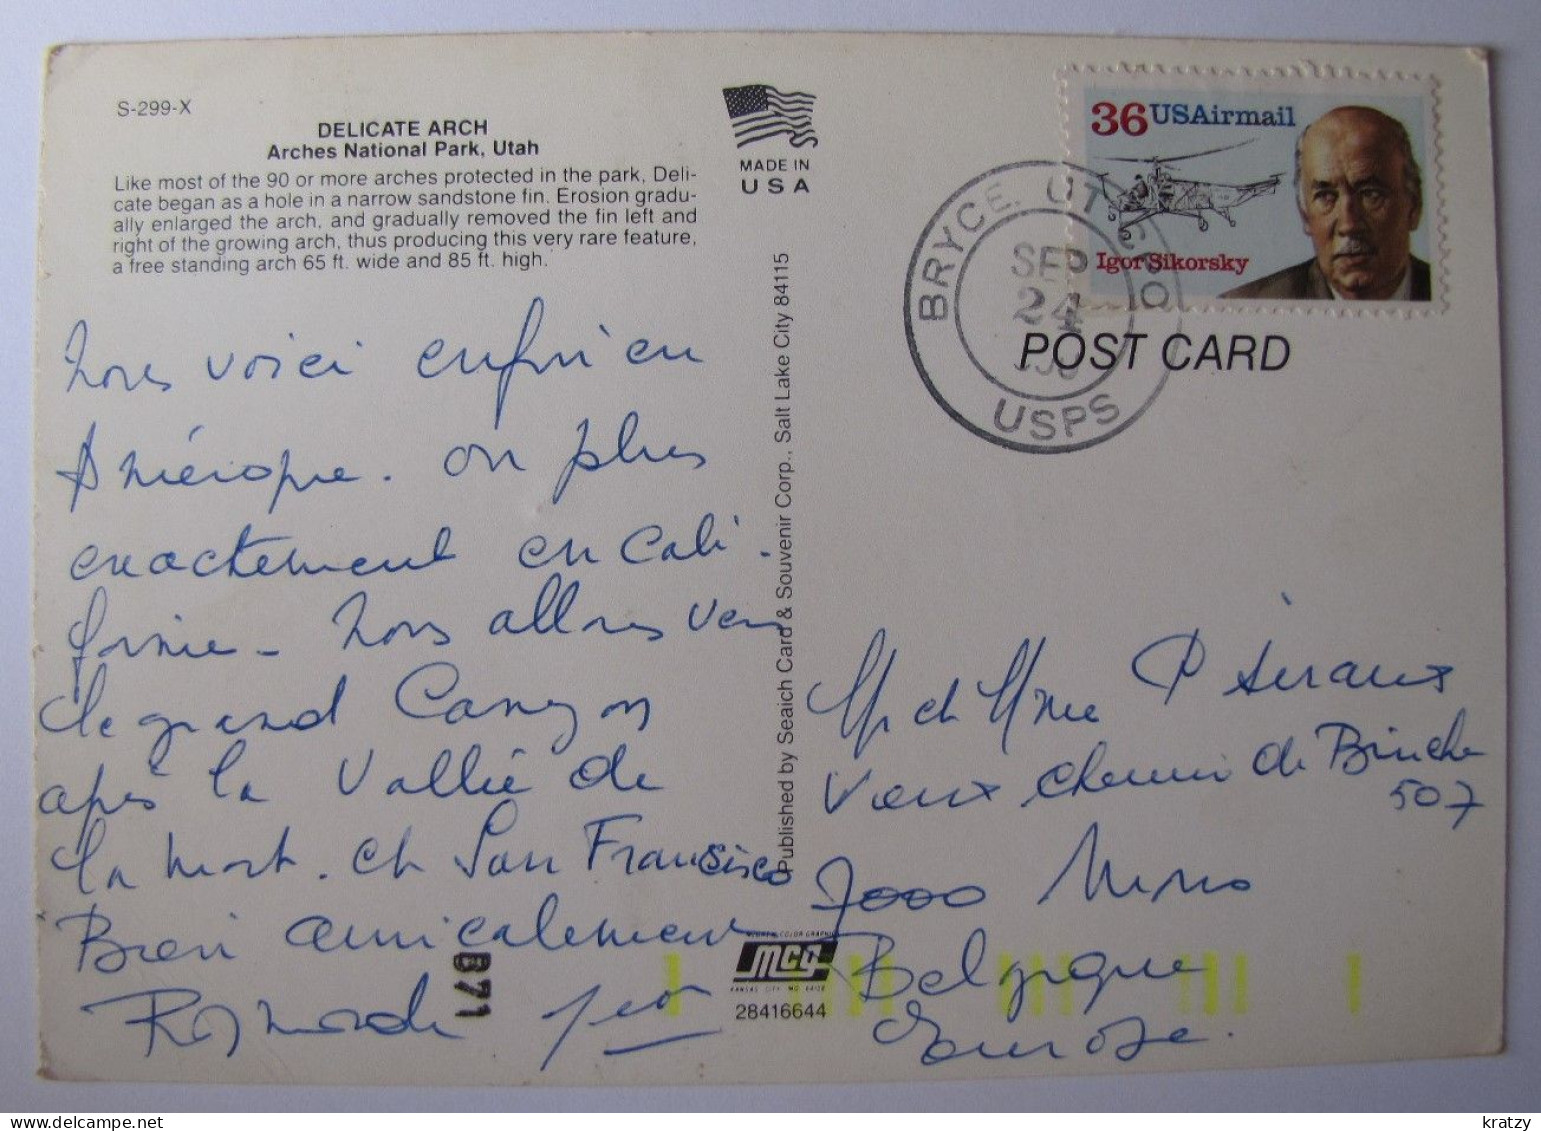 S-299-X
DELICATE ARCH
Arches National Park, Utah
Like most of the 90 or more arches protected in the park, Deli-
cate began as a hole in a narrow sandstone fin. Erosion gradu-
ally enlarged the arch, and gradually removed the fin left and
right of the growing arch, thus producing this very rare feature,
a free standing arch 65 ft. wide and 85 ft. high.
Nous voici enfin en
Amérique. ou plus
exactement en Cali-
fornie - Nous allons vers
le grand Canyon
après la Vallée de
la mort. et San Francisco
Bien amicalement
Raymonde
B71
MADE IN
USA
Published by Seaich Card & Souvenir Corp., Salt Lake City 84115
MCG
KANSAS CITY, MO.
28416644
36 USAirmail
Igor Sikorsky
BRYCE, UT
SEP
24
USPS
POST CARD
Mr et Mme
Vieux chemin de Binche
507
7000 Mons
Belgique
Europe.
kratzy